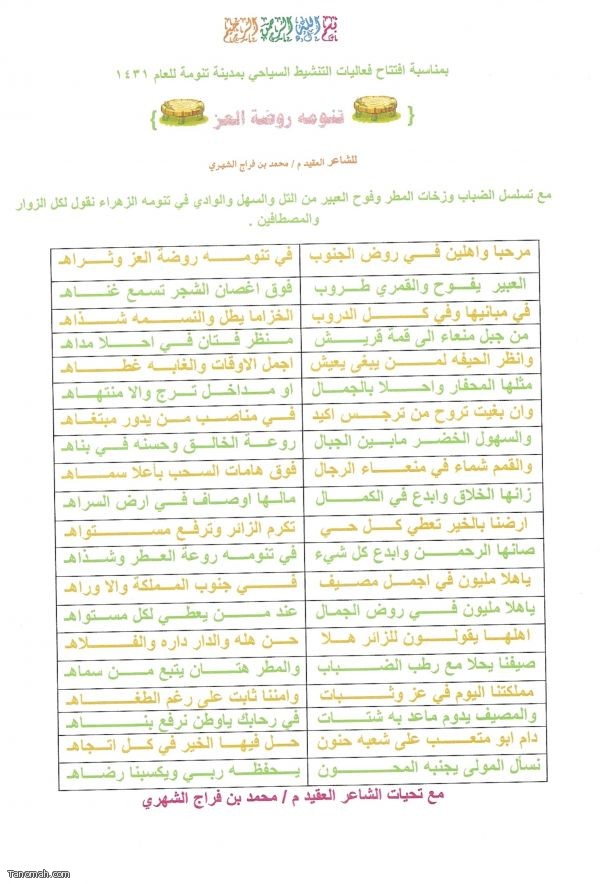 بسم الله الرحمن الرحيم
بمناسبة افتتاح فعاليات التنشيط السياحي بمدينة تنومة للعام ١٤٣١
{ تنومه روضة العز }
للشاعر العقيد م / محمد بن فراج الشهري
مع تسلسل الضباب وزخات المطر وفوح العبير من التل والسهل والوادي في تنومه الزهراء نقول لكل الزوار
والمصطافين .
مرحبا واهلين في روض الجنوب في تنومه روضة العز وثراها
العبير يفوح والقمري طروب فوق اغصان الشجر تسمع غناها
في مبانيها وفي كل الدروب الخزاما يطل والنسمه شذاها
من جبل منعاء الى قمة قريش منظر فتان في احلا مداها
وانظر الحيفه لمن يبغى يعيش اجمل الاوقات والغابه غطاها
مثلها المحفار واحلا بالجمال او مداخل ترج والا منتهاها
وان بغيت تروح من ترجس اكيد في مناصب من يدور مبتغاها
والسهول الخضر مابين الجبال روعة الخالق وحسنه في بناها
والقمم شماء في منعاء الرجال فوق هامات السحب باعلا سماها
زانها الخلاق وابدع في الكمال مالها اوصاف في ارض السراها
ارضنا بالخير تعطي كل حي تكرم الزائر وترفع مستواها
صانها الرحمن وابدع كل شيء في تنومه روعة العطر وشذاها
ياهلا مليون في اجمل مصيف في جنوب المملكة والا وراها
ياهلا مليون في روض الجمال عند من يعطي لكل مستواها
اهلها يقولون للزائر هلا حن هله والدار داره والفلاها
صيفنا يحلا مع رطب الضباب والمطر هتان يتبع من سماها
مملكتنا اليوم في عز وثبات وامننا ثابت على رغم الطغاها
والمصيف يدوم ماعد به شتات في رحابك ياوطن نرفع بناها
دام ابو متعب على شعبه حنون حل فيها الخير في كل اتجاها
نسأل المولى يجنبه المحون يحفظه ربي ويكسبنا رضاها
مع تحيات الشاعر العقيد م / محمد بن فراج الشهري
Tanomah.com